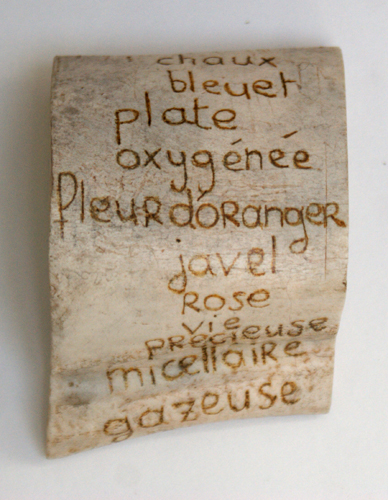 chaux
bleuet
plate
oxygénée
fleur d'oranger
javel
rose
vie
précieuse
micellaire
gazeuse